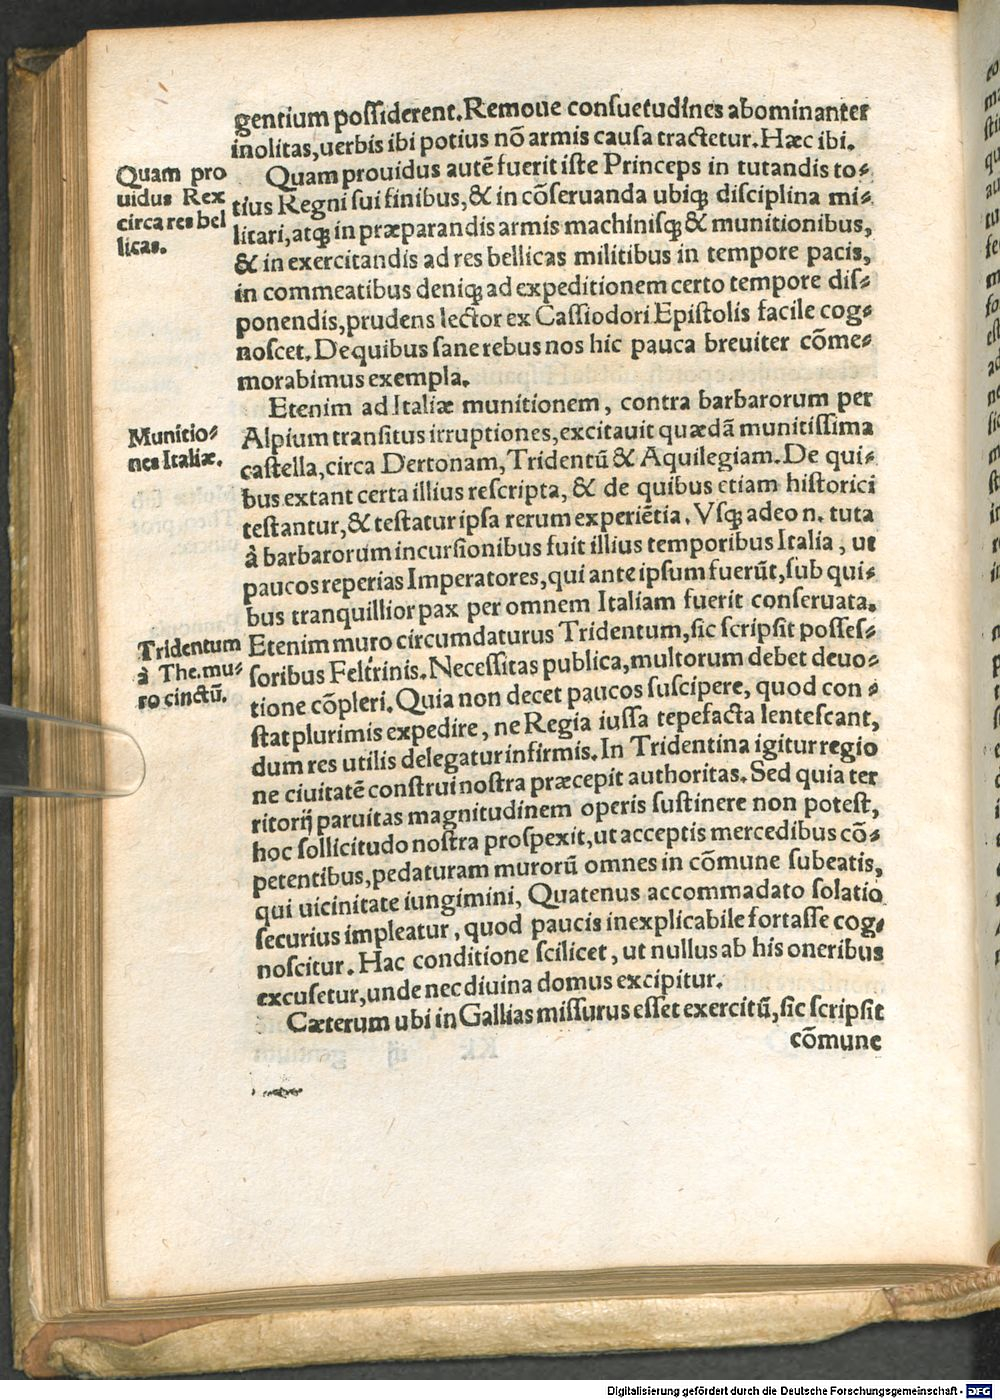 gentium poſſiderent. Remoue conſuetudines abominanter
inolitas, uerbis ibi potius nõ armis cauſa tractetur. Hæc ibi.
Quam pro
uidus Rex
circa res bel
licas.
Quam prouidus autẽ fuerit iſte Princeps in tutandis to⸗
tius Regni ſui finibus, & in cõſeruanda ubiqꝫ diſciplina mi⸗
litari, atqꝫ in præparandis armis machiniſqꝫ & munitionibus,
& in exercitandis ad res bellicas militibus in tempore pacis,
in commeatibus deniqꝫ ad expeditionem certo tempore diſ⸗
ponendis, prudens lector ex Caſſiodori Epiſtolis facile cog⸗
noſcet. De quibus ſane rebus nos hic pauca breuiter cõme⸗
morabimus exempla.
Munitio⸗
nes Italiæ.
Etenim ad Italiæ munitionem, contra barbarorum per
Alpium tranſitus irruptiones, excitauit quædã munitiſſima
caſtella, circa Dertonam, Tridentũ & Aquilegiam. De qui⸗
bus extant certa illius reſcripta, & de quibus etiam hiſtorici
teſtantur, & teſtatur ipſa rerum experiẽtia. Vſqꝫ adeo n. tuta
à barbarorum incurſionibus fuit illius temporibus Italia, ut
paucos reperias Imperatores, qui ante ipſum fuerũt, ſub qui⸗
bus tranquillior pax per omnem Italiam fuerit conſeruata.
Tridentum
à The. mu⸗
ro cinctũ.
Etenim muro circumdaturus Tridentum, ſic ſcripſit poſſeſ⸗
ſoribus Feltrinis. Neceſſitas publica, multorum debet deuo⸗
tione cõpleri. Quia non decet paucos ſuſcipere, quod con⸗
ſtat plurimis expedire, ne Regia iuſſa tepefacta lenteſcant,
dum res utilis delegatur infirmis. In Tridentina igitur regio
ne ciuitatẽ conſtrui noſtra præcepit authoritas. Sed quia ter
ritorij paruitas magnitudinem operis ſuſtinere non poteſt,
hoc ſollicitudo noſtra proſpexit, ut acceptis mercedibus cõ⸗
petentibus, pedaturam murorũ omnes in cõmune ſubeatis,
qui uicinitate iungimini, Quatenus accommadato ſolatio
ſecurius impleatur, quod paucis inexplicabile fortaſſe cog⸗
noſcitur. Hac conditione ſcilicet, ut nullus ab his oneribus
excuſetur, unde nec diuina domus excipitur.
Cæterum ubi in Gallias miſſurus eſſet exercitũ, ſic ſcripſit
cõmune
Digitalisierung gefördert durch die Deutsche Forschungsgemeinschaft - DFG